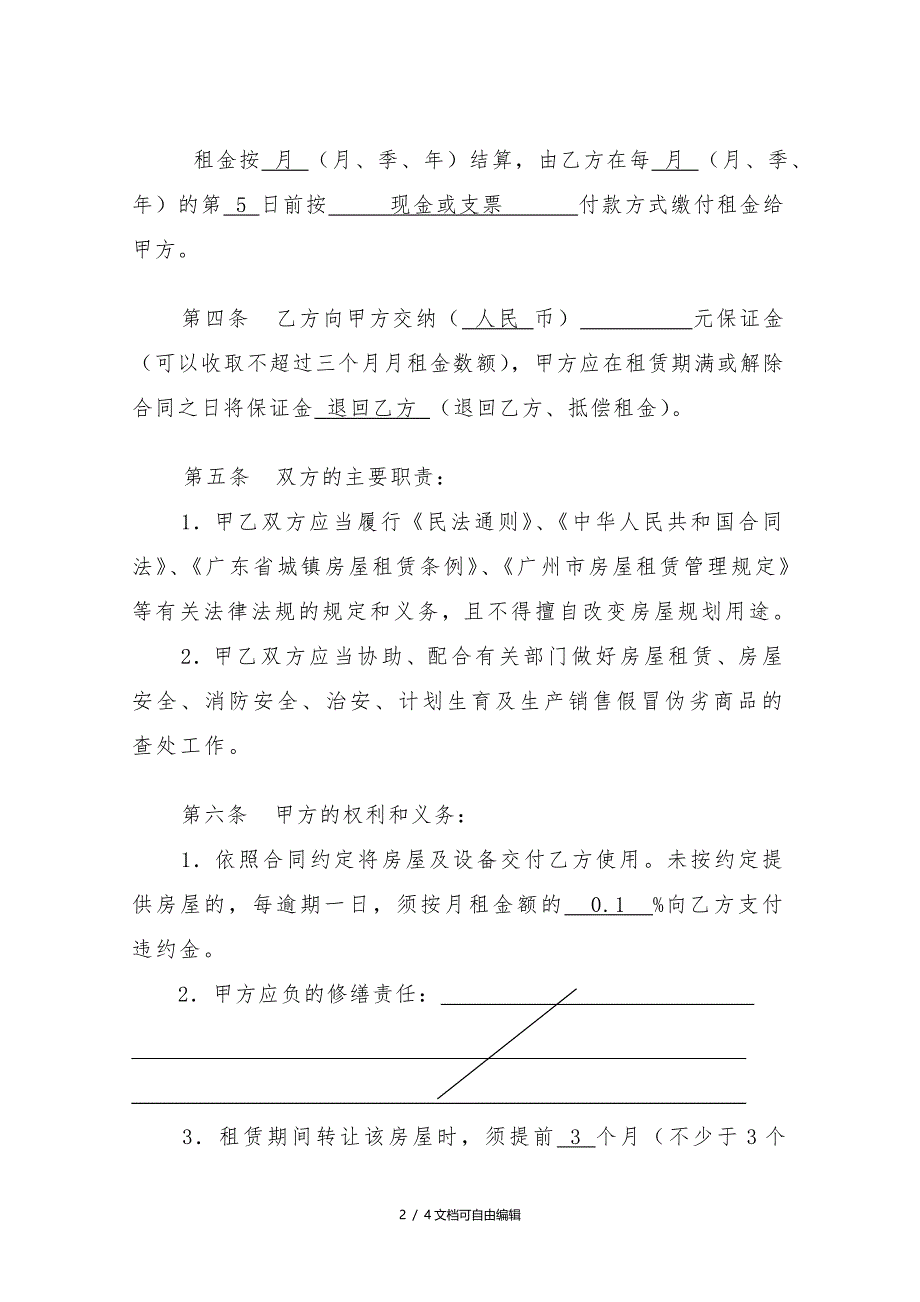 租金按 月 （月、季、年）结算，由乙方在每 月 （月、季、
年）的第 5 日前按 现金或支票 付款方式缴付租金给
甲方。
第四条 乙方向甲方交纳（ 人民 币） 元保证金
（可以收取不超过三个月月租金数额），甲方应在租赁期满或解除
合同之日将保证金 退回乙方 （退回乙方、抵偿租金）。
第五条 双方的主要职责：
1．甲乙双方应当履行《民法通则》、《中华人民共和国合同
法》、《广东省城镇房屋租赁条例》、《广州市房屋租赁管理规定》
等有关法律法规的规定和义务，且不得擅自改变房屋规划用途。
2．甲乙双方应当协助、配合有关部门做好房屋租赁、房屋
安全、消防安全、治安、计划生育及生产销售假冒伪劣商品的
查处工作。
第六条 甲方的权利和义务：
1．依照合同约定将房屋及设备交付乙方使用。未按约定提
供房屋的，每逾期一日，须按月租金额的 0.1 %向乙方支付
违约金。
2．甲方应负的修缮责任：
3．租赁期间转让该房屋时，须提前 3 个月（不少于3个
2 / 4文档可自由编辑